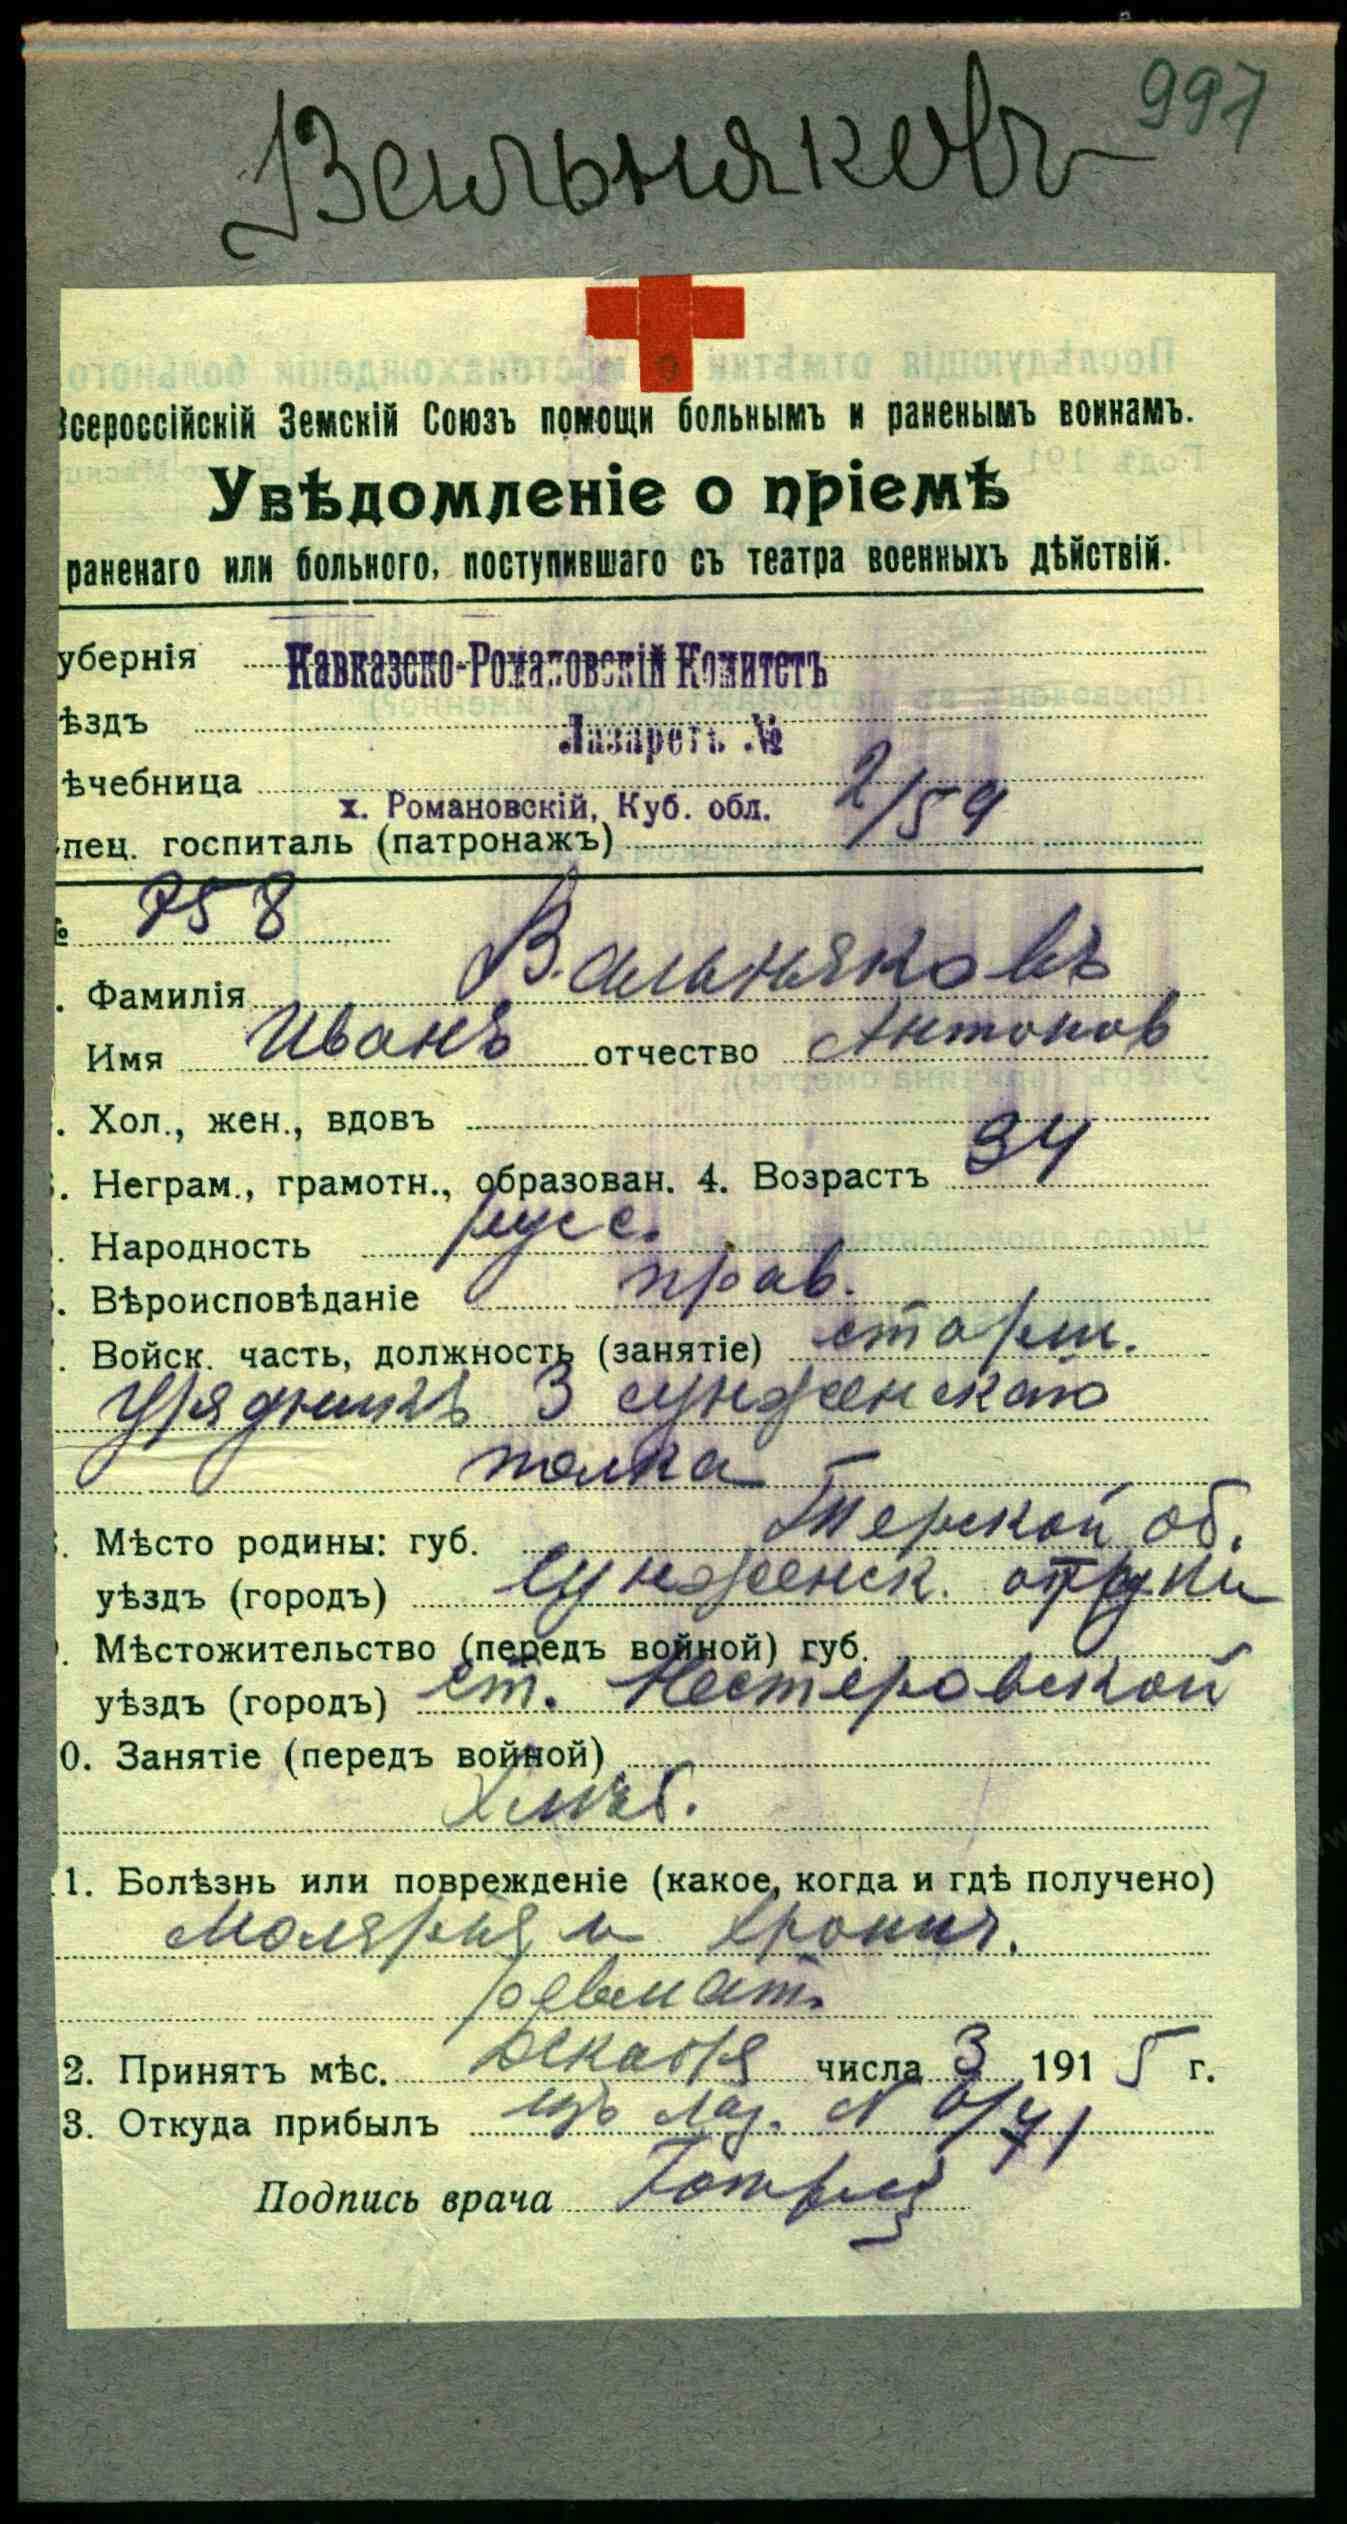 997
Вальняковъ
Всероссійскій Земскій Союзъ помощи больнымъ и раненымъ воинамъ.
Увѣдомленіе о пріемѣ
раненаго или больного, поступившаго съ театра военныхъ дѣйствій.
убернія Кавказско-Романовскій Комитетъ
ѣздъ Лазаретъ №
ѣчебница х. Романовскій, Куб. обл. 2/59
пец. госпиталь (патронажъ)
№ 858
. Фамилія Вальняковъ
Имя Иванъ отчество Антонов
. Хол., жен., вдовъ
. Неграм., грамотн., образован. 4. Возрастъ 34
. Народность русс.
. Вѣроисповѣданіе прав.
. Войск. часть, должность (занятіе) старш.
урядникъ 3 сунженскаго
полка
. Мѣсто родины: губ. Терской об.
уѣздъ (городъ) Сунженск.
. Мѣстожительство (передъ войной) губ.
уѣздъ (городъ) ст. Нестеровской
0. Занятіе (передъ войной)
Хлѣб.
1. Болѣзнь или поврежденіе (какое, когда и гдѣ получено)
Молярія и хронич.
ревмат.
2. Принятъ мѣс. Декабря числа 3 1915 г.
3. Откуда прибылъ изъ лаз. N
Подпись врача